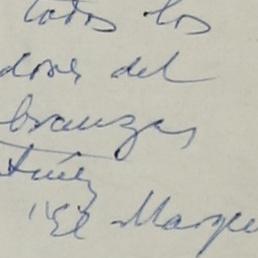 todos los
dores del
branzas
"El Marque